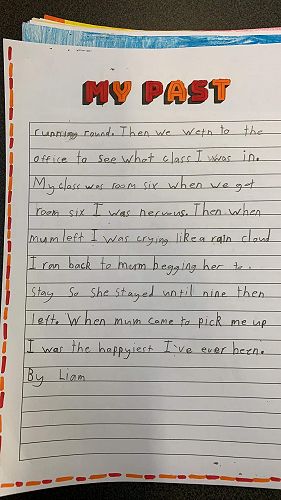 MY PAST
running round. Then we wetn to the
office to see what class I was in.
My class was room six when we got
room six I was nervous. Then when
mum left I was crying like a rain cloud
I ran back to mum begging her to.
stay so she stayed until nine then
left. When mum came to pick me up
I was the happyiest I've ever been.
By Liam